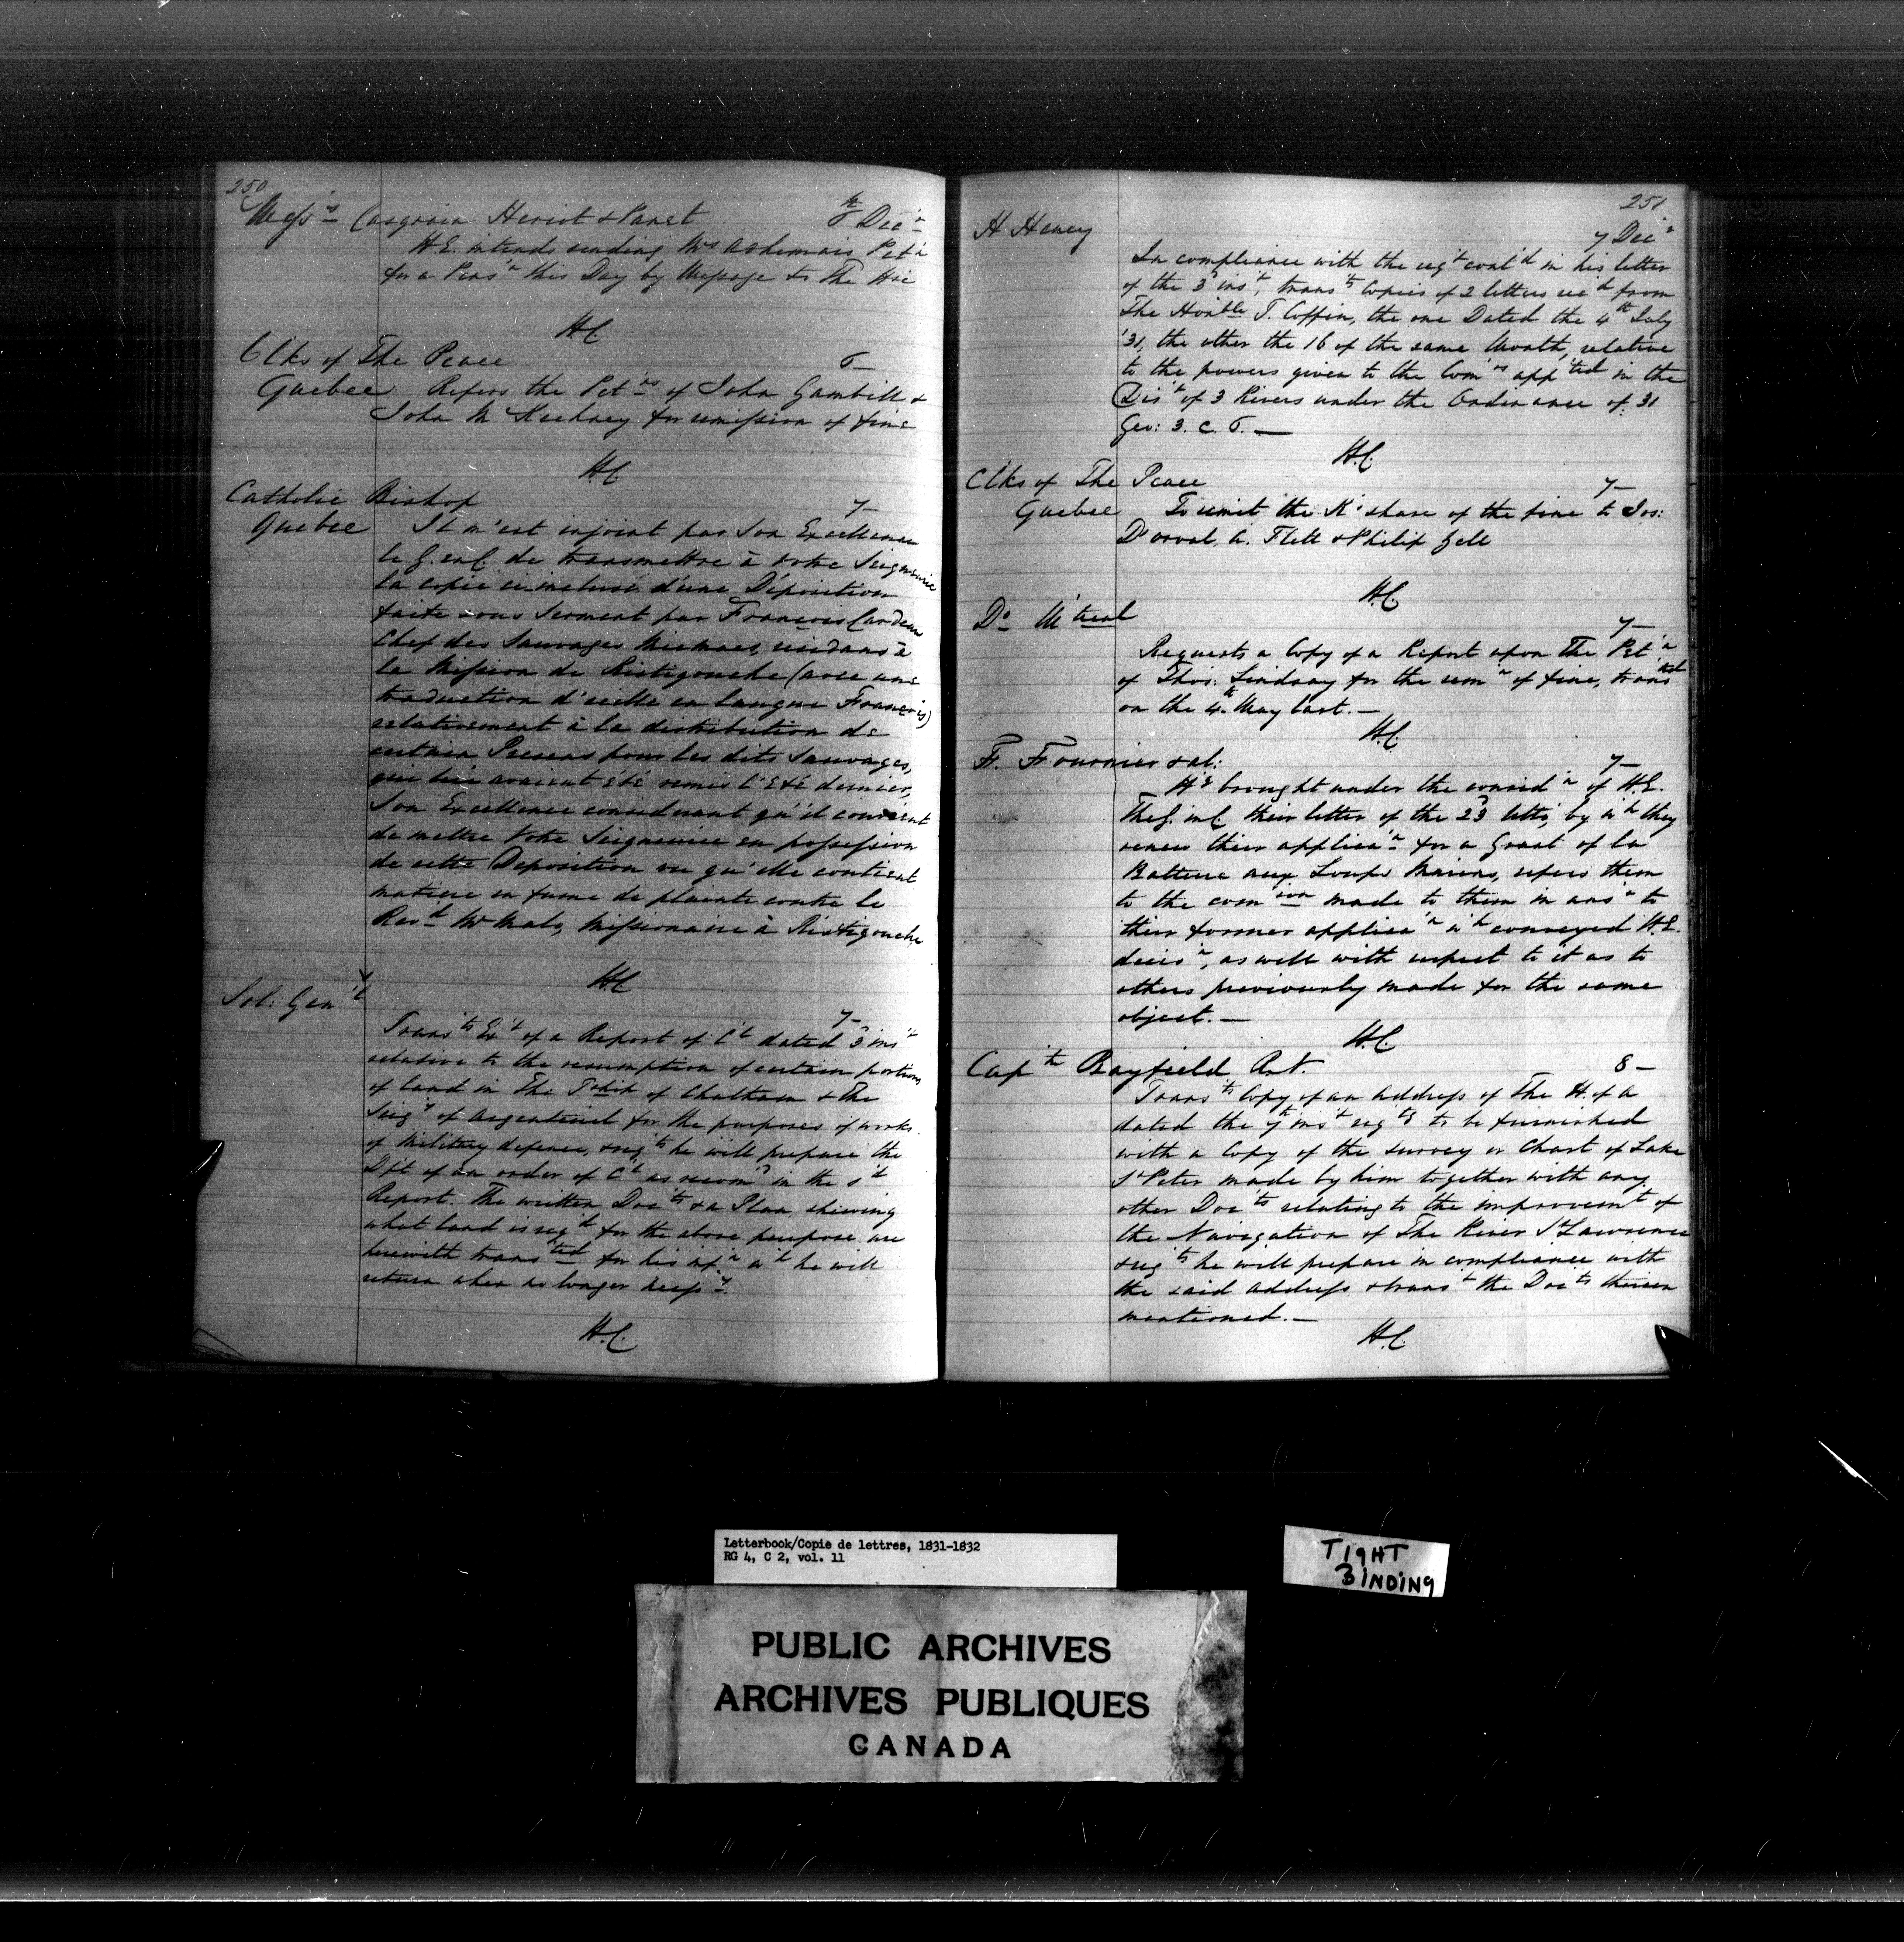 250
Mess'rs Casgrain Heriot & Panet 6th Dec'r
H.E. intends sending Mrs Adhemar's Pet'n
for a Pens'n this Day by Message to The Hse
H.C.
Clks of The Peace 6_
Quebec Refers the Pet'ns of John Gambill &
John Mc Keckney for remission of fine
H.C.
Catholic Bishop 7_
Quebec Il m'est enjoint par Son Excellence
le G. en C. de transmettre à votre Seigneurie
la copie ci incluse d'une Déposition
faite sous Serment par François Cardeau
Chef des Sauvages Micmacs, residans à
la Mission de Ristigouche (avec une
traduction d'icelle en langue Française)
relativement à la distribution de
certain Presens pour les dits Sauvages,
qui lui avaient été remis l'Eté dernier,
Son Excellence considerant qu'il convient
de mettre Votre Seigneurie en possession
de cette Deposition vu qu'elle contient
matiere en forme de plainte contre le
Rev'd Mr Malo, Missionaire à Ristigouche
H.C.
Sol: Gen'l 7_
Trans'ts Ex't of a Report of C'l dated 3 ins't
relative to the resumption of certain portions
of land in The T'ship of Chatham & The
Seig'y of Argenteuil for the purposes of works
of Military defence, & req'ts he will prepare the
D'ft of an order of C'l as recom'd in the s'd
Report. The written Doc'ts & a Plan, shewing
what land is req'd for the above purpose are
herewith trans'ted for his inf'n w'h he will
return when no longer necess'y.
H.C.
251
H Heney 7 Dec'r
In compliance with the req't cont'd in his letter
of the 3 ins't, trans'ts Copies of 2 letters rec'd from
The Hon'ble T. Coffin, the one Dated the 4th July
'31, the other the 16 of the same Month, relative
to the powers given to the Com'rs app'ted in the
Dis't of 3 Rivers under the Ordinance of 31
Geo: 3. C. 6._
H.C.
Clks of The Peace 7_
Quebec To remit the K's share of the fine to Jos:
Dorval, A. Flett & Philip Zell
H.C.
Do_ M'treal 7_
Requests a Copy of a Report upon The Pet'n
of Thos: Lindsay for the rem'n of fine, trans'ted
on the 4th May last._
H.C.
Fr. Fournier & al: 7_
H'g brought under the consid'n of H.E.
The G. in C. their letter of the 23 Ulto, by w'h they
renew their applica'n for a Grant of La
Batture aux Loups Marins, refers them
to the com'ion made to them in ans'r to
their former applica'n w'h conveyed H.E.
decis'n, as well with respect to it as to
others previously made for the same
object._
H.C.
Cap'tn Bayfield R.N. 8_
Trans'ts Copy of an Address of The H. of A
dated the 7th ins't req'tg to be furnished
with a Copy of the survey or Chart of Lake
St Peter made by him together with any
other Doc'ts relating to the improvem't of
the Navigation of The River St Lawrence
& req'ts he will prepare in compliance with
the said Address & trans't the Doc'ts therein
mentioned._
H.C.
Letterbook/Copie de lettres, 1831-1832
RG 4, C 2, vol. 11
TIGHT
BINDING
PUBLIC ARCHIVES
ARCHIVES PUBLIQUES
CANADA